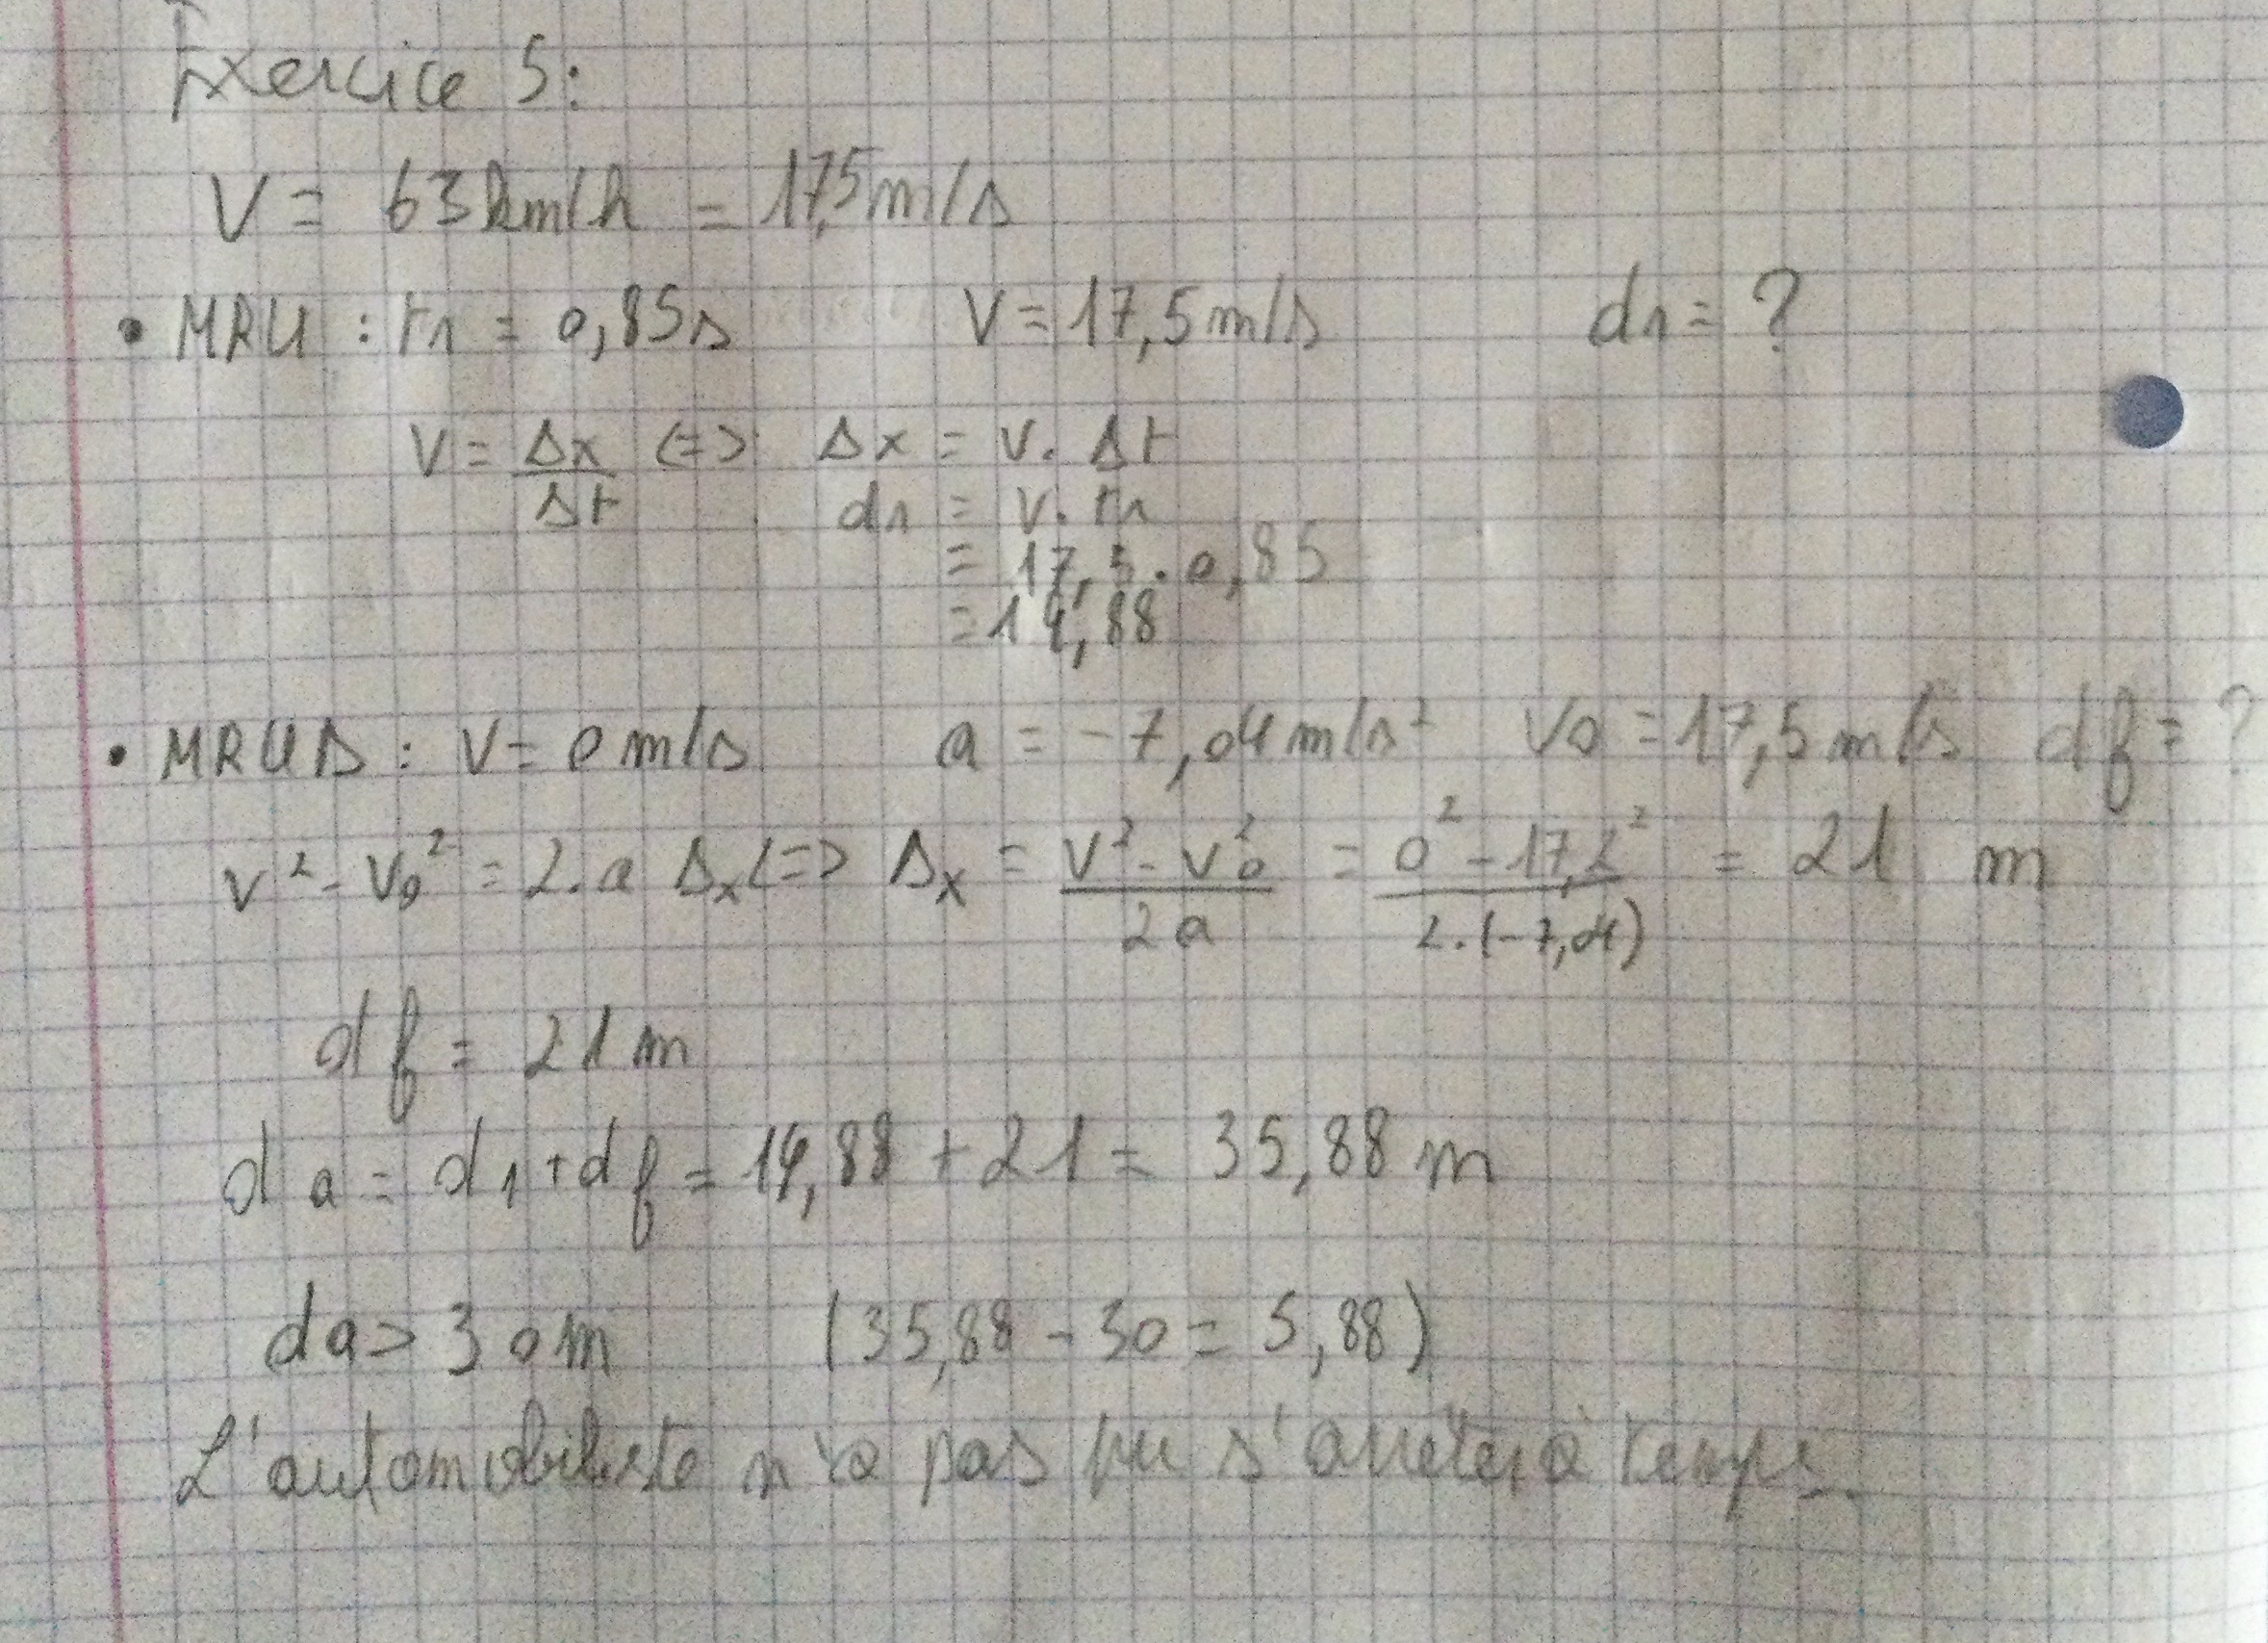 Exercice 5:
V = 63km/h = 17,5m/s
• MRU : t1 = 0,85s V = 17,5m/s d1 = ?
V = Δx/Δt <=> Δx = V. Δt
d1 = V. t1
= 17,5. 0,85
= 14,88
• MRUD : V = 0 m/s a = -7,04 m/s² V0 = 17,5 m/s df = ?
V² - V0² = 2.a Δx <=> Δx = (V² - V0²)/(2a) = (0² - 17,2²)/(2.(-7,04)) = 21 m
df = 21 m
da = d1 + df = 14,88 + 21 = 35,88 m
da > 30m (35,88 - 30 = 5,88)
L'automobiliste n'a pas pu s'arrêter à temps.